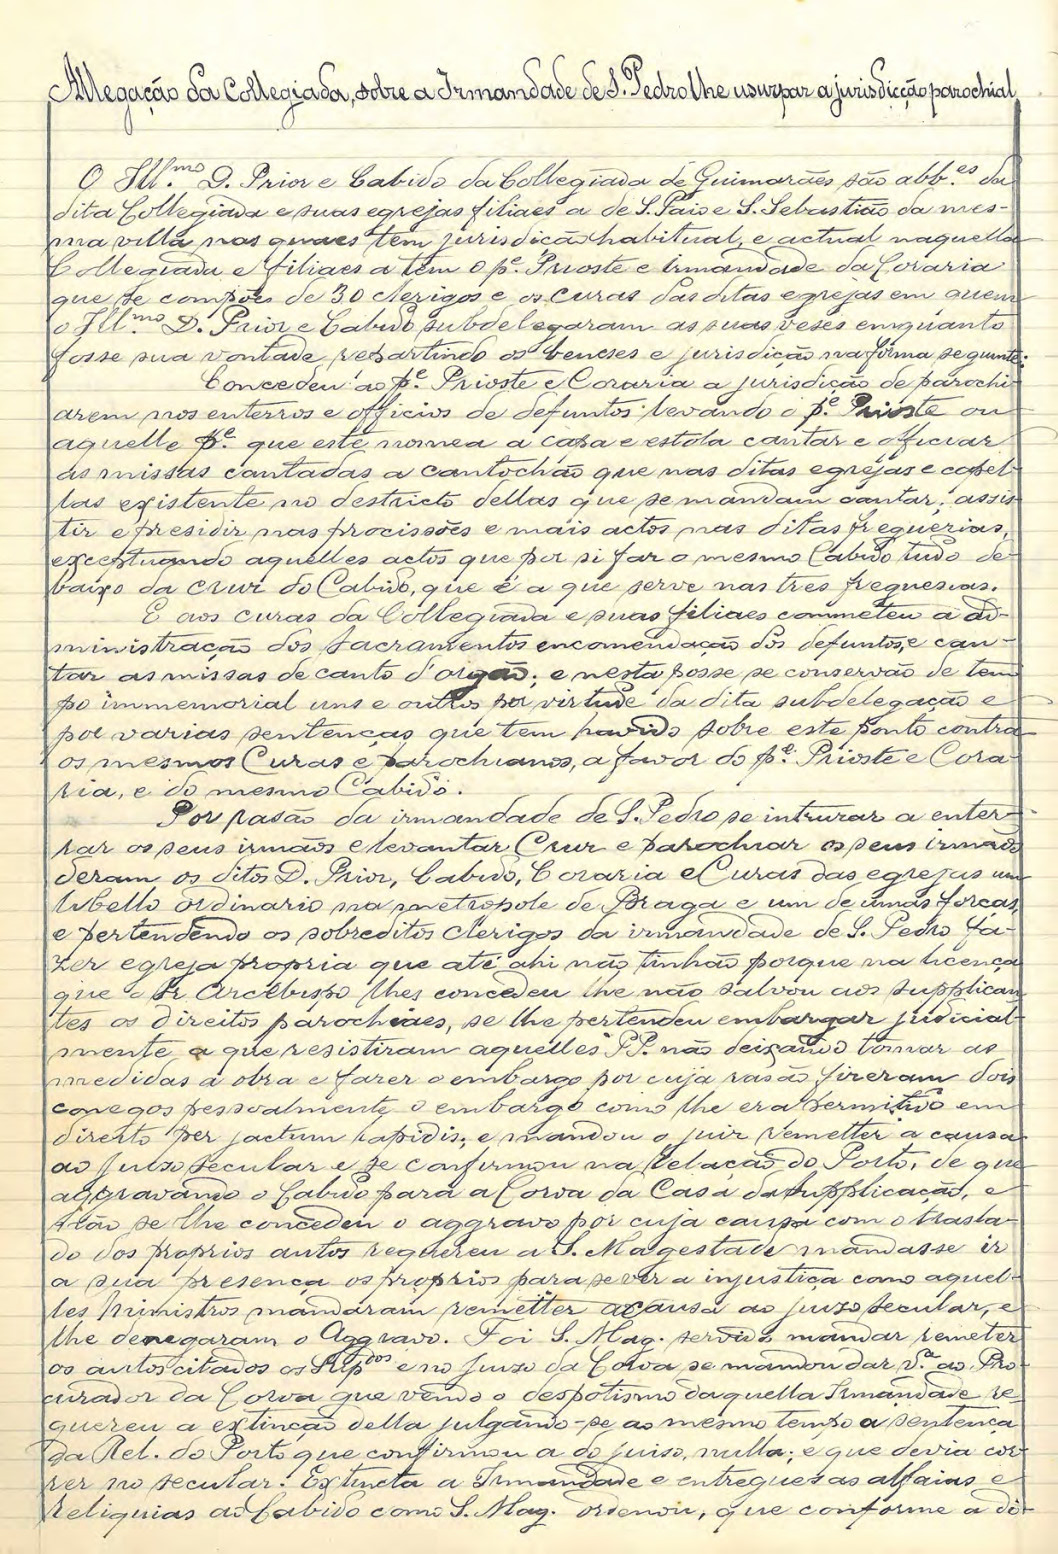 Allegação da Collegiada, sobre a Irmandade de S. Pedro lhe usurpar a jurisdicção parochial
O Ill.mo D. Prior e Cabido da Collegiada de Guimarães são abb.es da
dita Collegiada e suas egrejas filiaes a de S. Paio e S. Sebastião da mes-
ma villa nas quaes tem jurisdicão habitual, e actual naquella
Collegiada e filiaes a tem o p.e Prioste e Irmandade da Coraria
que se compões de 30 clerigos e os curas das ditas egrejas em quem
o Ill.mo D. Prior e Cabido subdelegaram as suas veses emquanto
fosse sua vontade repartindo os beneses e jurisdição na forma seguinte:
Concedeu ao p.e Prioste e Coraria a jurisdição de parochi-
arem nos enterros e officios de defuntos levando o p.e Prioste ou
aquelle p.e que este nomea a capa e estola cantar e officiar
as missas cantadas a cantochão que nas ditas egrejas e capel-
las existente no destricto dellas que se mandam cantar; assis-
tir e presidir nas procissões e mais actos nas ditas freguerias,
exceptuando aquelles actos que por si far o mesmo Cabido tudo de-
baixo da crur do Cabido, que é a que serve nas tres freguesias.
E aos curas da Collegiada e suas filiaes commeteu a ad-
ministração dos sacramentos encomendação dos defuntos, e can-
tar as missas de canto d'orgão; e nesta posse se conservão de tem-
po immemorial uns e outros por virtude da dita subdelegação e
por varias sentenças que tem havido sobre este ponto contra
os mesmos Curas e parochianos, a favor do p.e Prioste e Cora-
ria, e do mesmo Cabido.
Por rasão da irmandade de S. Pedro se intrurar a enter-
rar os seus irmãos e levantar Crur e parochiar os seus irmãos
deram os ditos D. Prior, Cabido, Coraria e Curas das egrejas um
libello ordinario na metropole de Braga e um de umas forças,
e pertendendo os sobreditos clerigos da irmandade de S. Pedro fa-
zer egreja propria que até ahi não tinhão porque na licença
que o Sr. Arcebispo lhes concedeu lhe não salvou aos supplican-
tes os direitos parochiaes, se lhe pertendeu embargar judicial-
mente, a que resistiram aquelles PP. não deixando tomar as
medidas á obra e fazer o embargo por cuja rasão fireram dois
conegos pessoalmente o embargo como lhe era permitido em
direito per jactum lapidis; e mandou o juir remetter a causa
ao juiso secular e se confirmou na Relação do Porto, de que
aggravando o Cabido para a Coroa da Casa da Supplicação, e
não se lhe concedeu o aggravo por cuja causa com o trasla-
do dos proprios autos requereu a S. Magestade mandasse ir
a sua presença os proprios para se ver a injustiça como aquel-
les ministros mandaram remetter a causa ao juiso secular, e
lhe denegaram o Aggravo. Foi S. Mag. servido mandar remeter
os autos citados os Rlp.dos e no Juiso da Coroa se mandou dar v.a ao Pro-
curador da Coroa que vendo o despotismo daquella Irmandade re-
quereu a extinção della julgando-se ao mesmo tempo a sentença
da Rel. do Porto que confirmou a do juiso, nulla; e que devia cor-
rer no secular. Extincta a Irmandade e entregues as alfaias e
Reliquias ao Cabido como S. Mag. ordenou, que conforme a di-